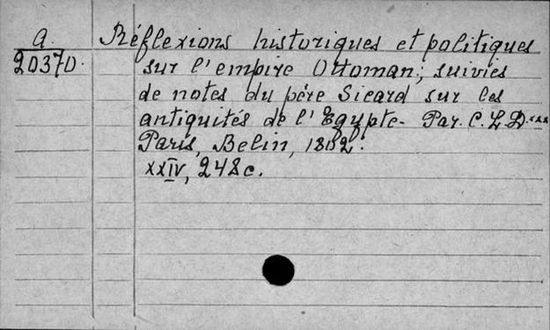 A. Réflexions historiques et politiques
20370. sur l'empire Ottoman; suivies
de notes du père Sicard sur les
antiquités de l'Egypte. Par. C. L. D.***
Paris, Belin, 1802.
XXIV, 248 c.